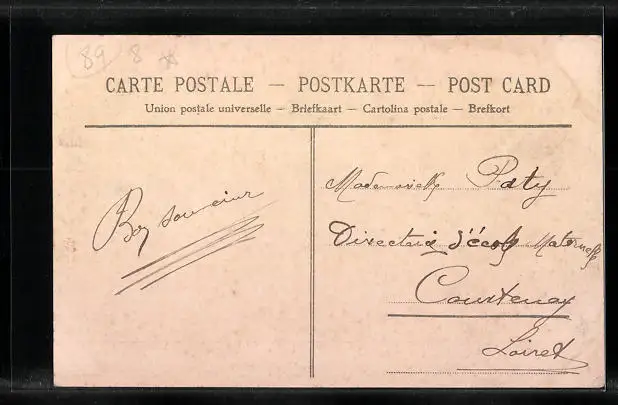 89 8
CARTE POSTALE — POSTKARTE — POST CARD
Union postale universelle — Briefkaart — Cartolina postale — Brefkort
Bon souvenir
Mademoiselle Paty
Directrice d'école Maternelle
Courtenay
Loiret